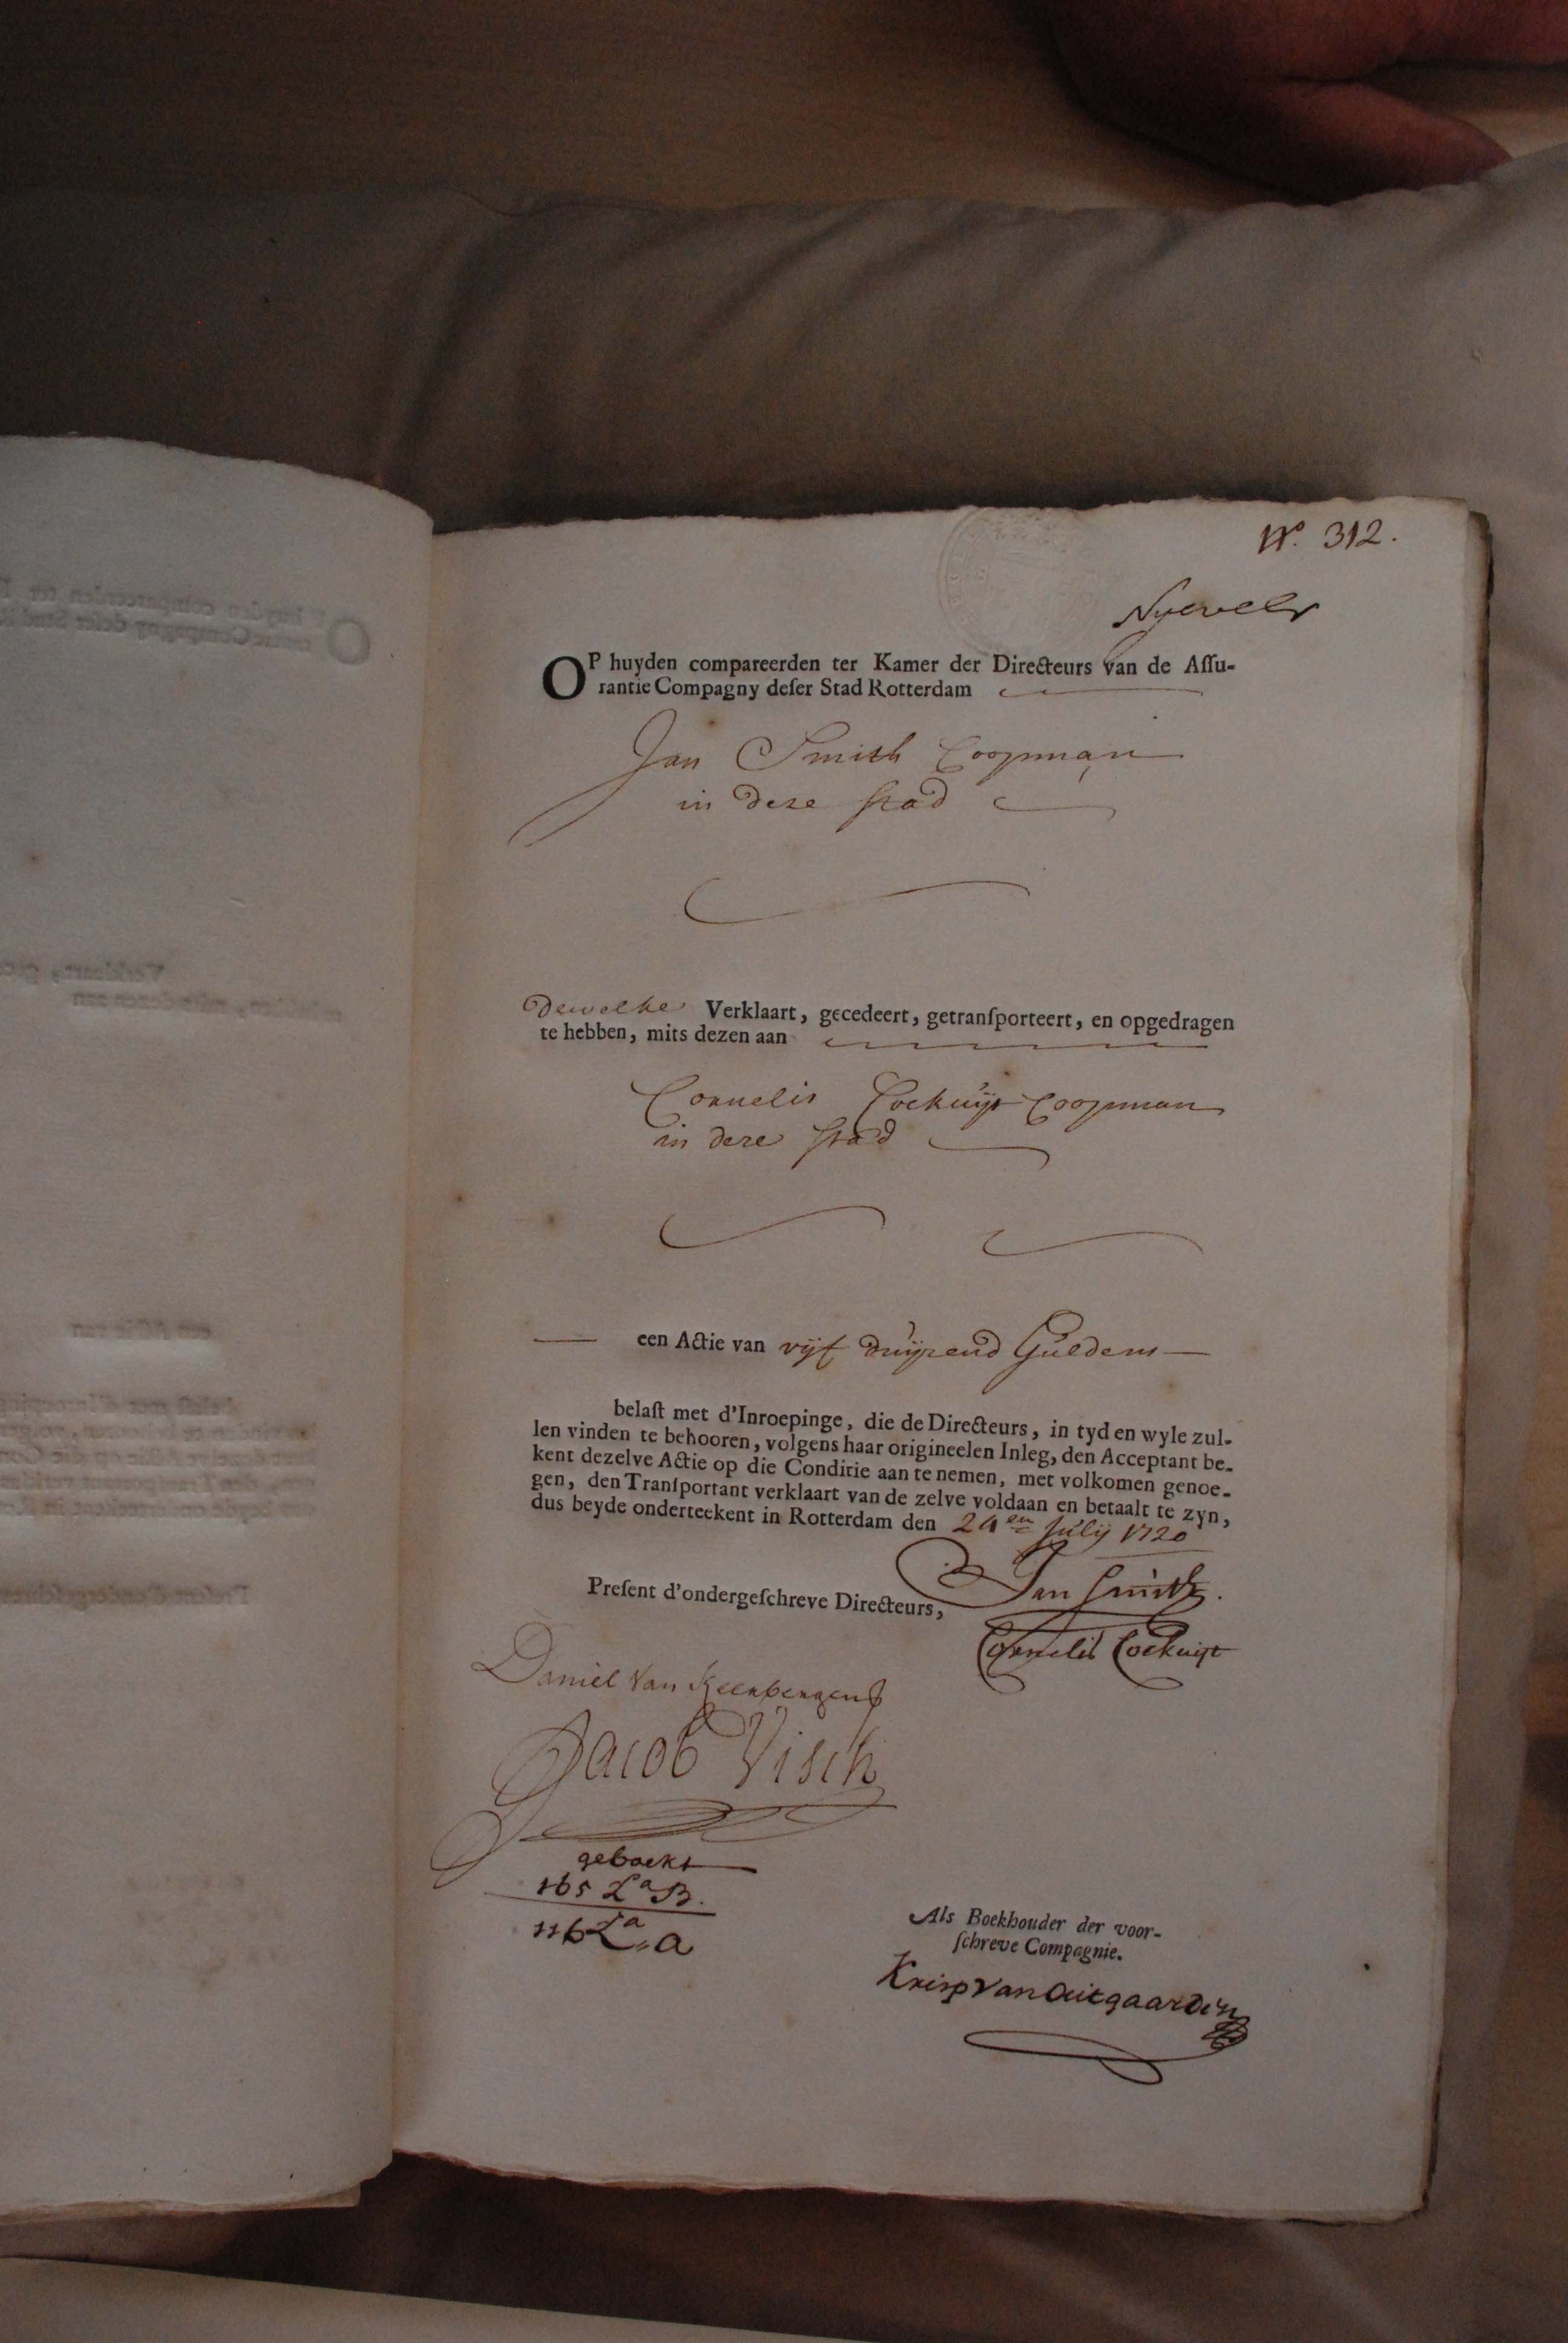 N.º 312.
Nyevelt
OP huyden compareerden ter Kamer der Directeurs van de Aſſu-
rantie Compagny deſer Stad Rotterdam
Jan Smith Coopman
in deze stad
Dewelke Verklaart, gecedeert, getranſporteert, en opgedragen
te hebben, mits dezen aan
Cornelis Cockuijt Coopman
in deze stad
een Actie van vijf duijzend Guldens
belaſt met d'Inroepinge, die de Directeurs, in tyd en wyle zul-
len vinden te behooren, volgens haar origineelen Inleg, den Acceptant be-
kent dezelve Actie op die Conditie aan te nemen, met volkomen genoe-
gen, den Tranſportant verklaart van de zelve voldaan en betaalt te zyn,
dus beyde onderteekent in Rotterdam den 24en Julij 1720
Jan Smith.
Preſent d'ondergeſchreve Directeurs,
Cornelis Cockuijt
Daniel Van Keerbergen
Jacob Visch
geboekt
165 La B.
116 La a
Als Boekhouder der voor-
ſchreve Compagnie.
Krisp Van Outgaarden